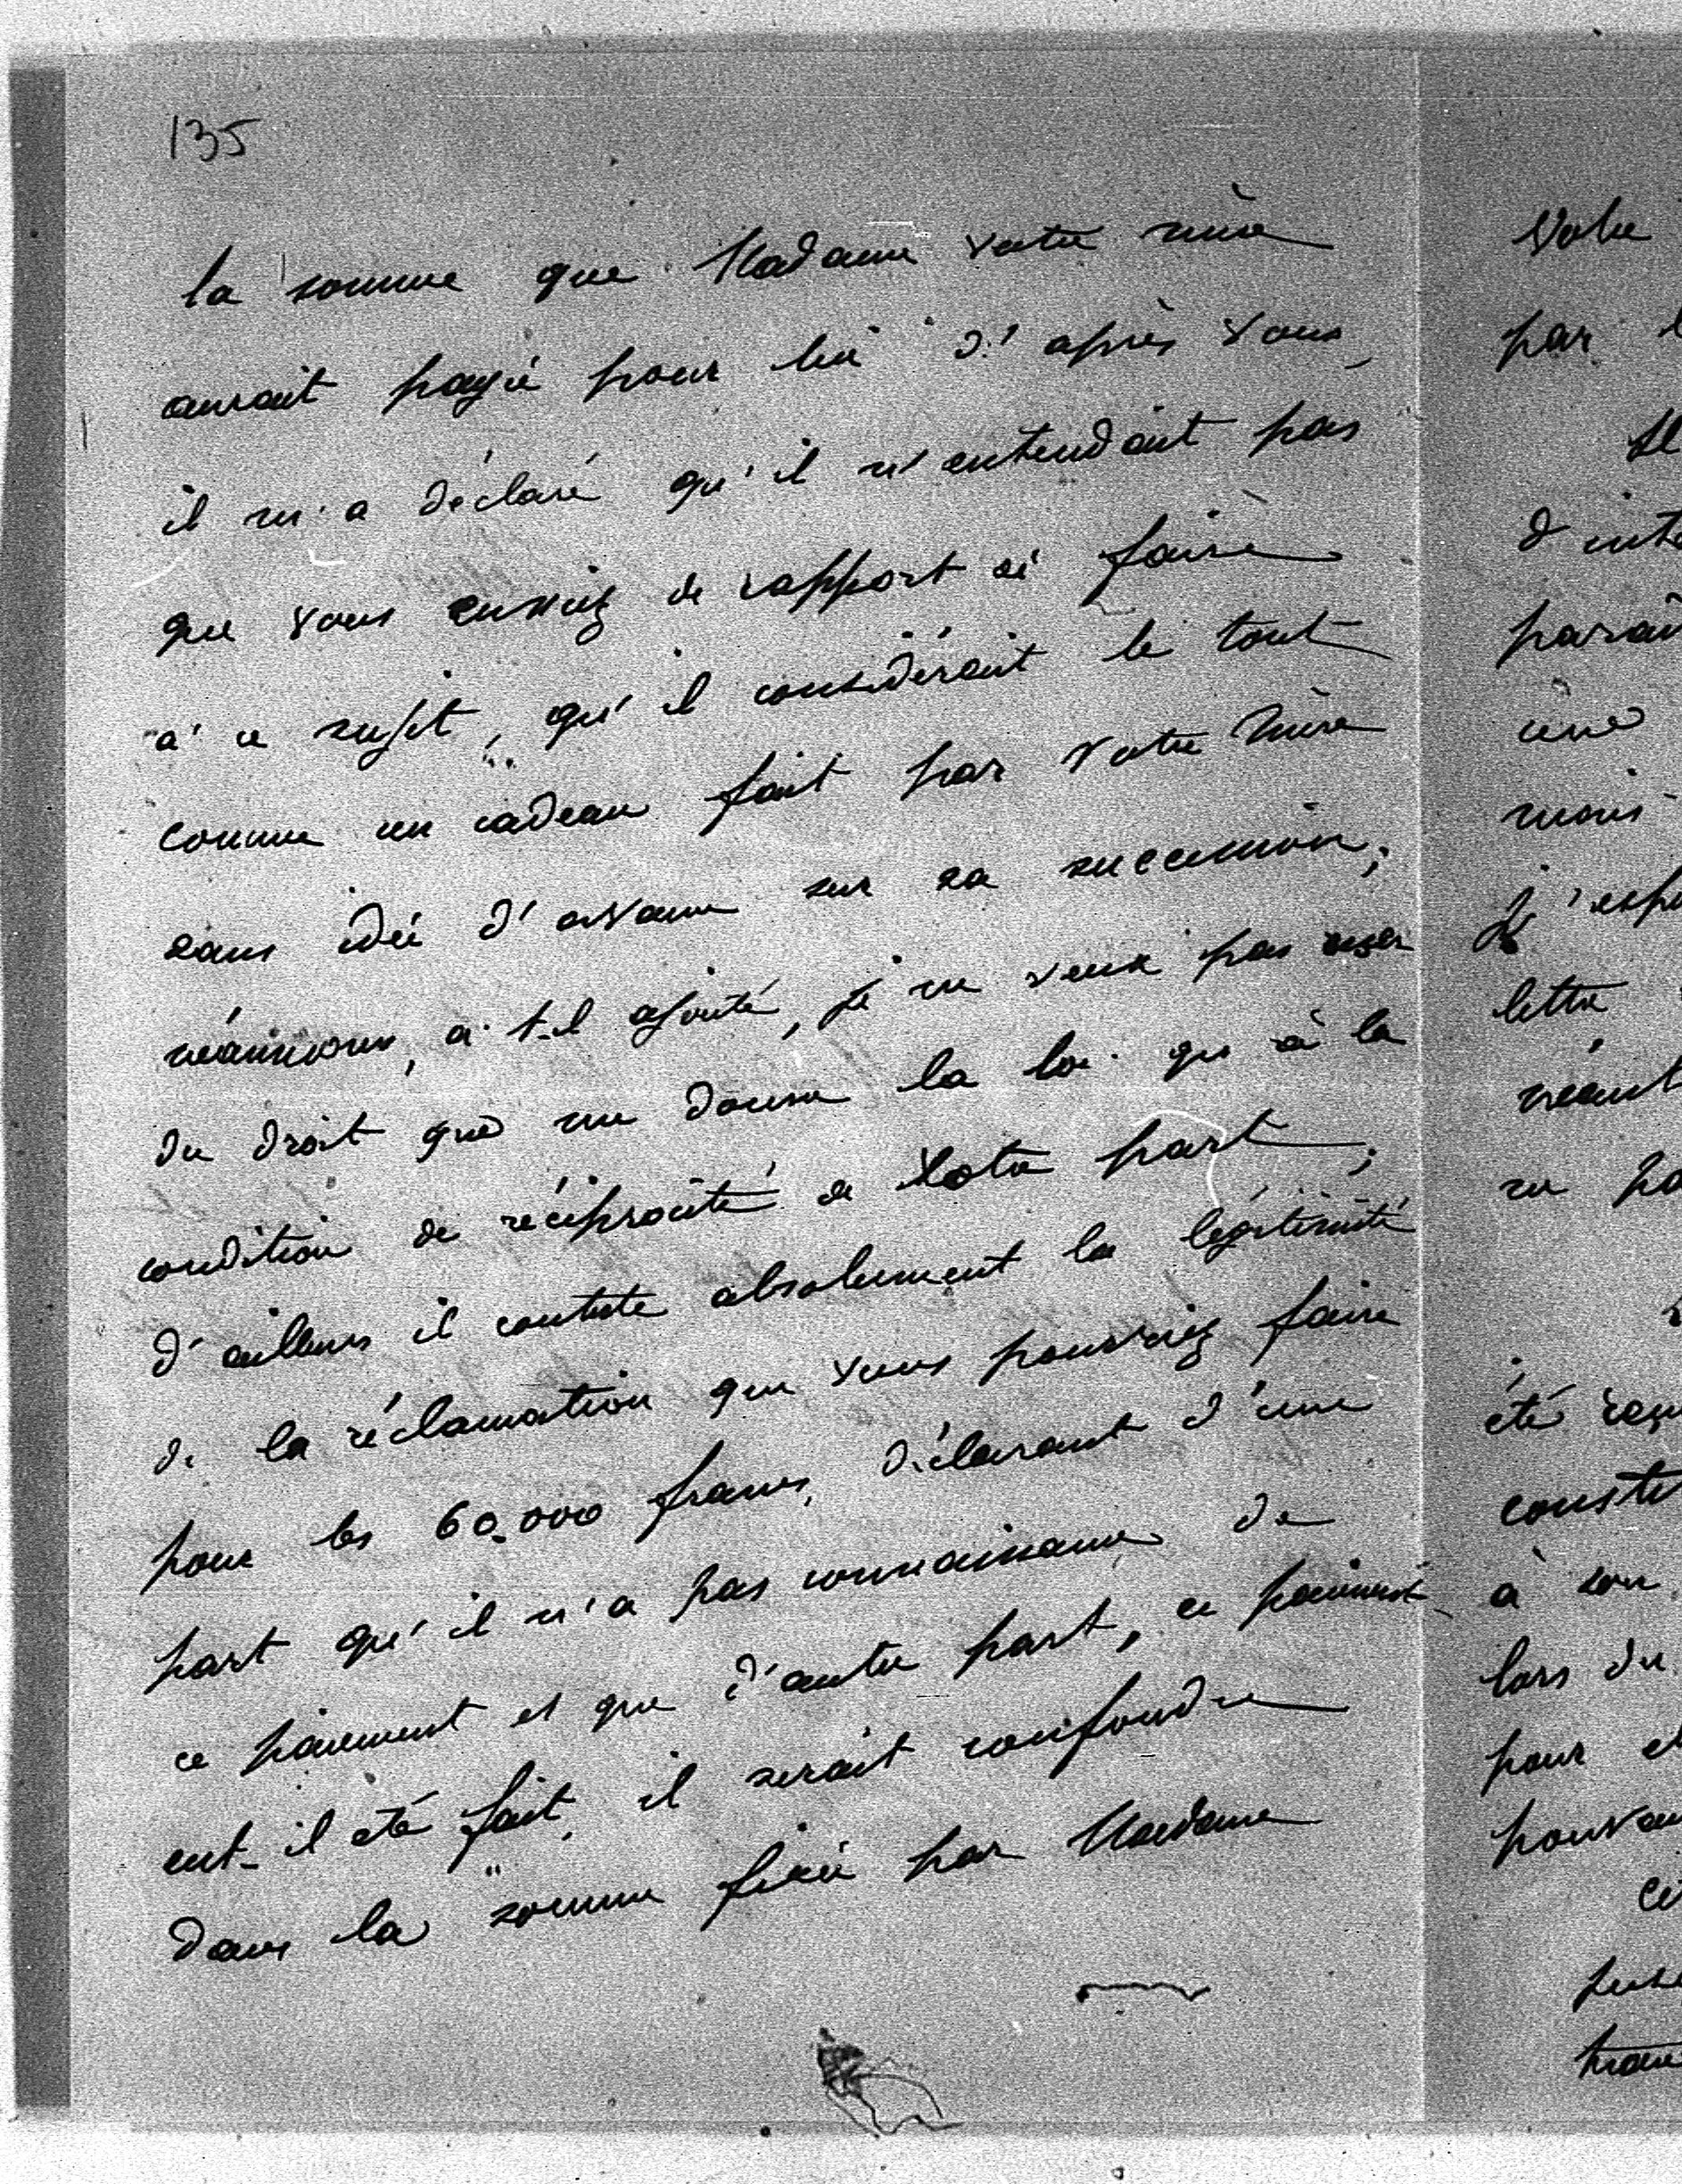 135
la somme que Madame votre mère
aurait payée pour lui d'après vous,
il m'a déclaré qu'il n'entendait pas
que vous eussiez de rapport à faire
à ce sujet, qu'il considérait le tout
comme un cadeau fait par votre mère
sans idée d'avance sur sa succession;
néanmoins, a-t-il ajouté, je ne veux pas user
du droit que me donne la loi qu'à la
condition de réciprocité de votre part;
d'ailleurs il conteste absolument la légitimité
de la réclamation que vous pourriez faire
pour les 60.000 francs, déclarant d'une
part qu'il n'a pas connaissance de
ce paiement et que d'autre part, ce paiement
eut-il été fait, il serait confondu
dans la somme fixée par Madame
Votre
par
Il
d'inté
paraî
une
mais
j'espè
lettre
néant
ne pa
été reçu
consti
à son
lors du
pour
pouvai